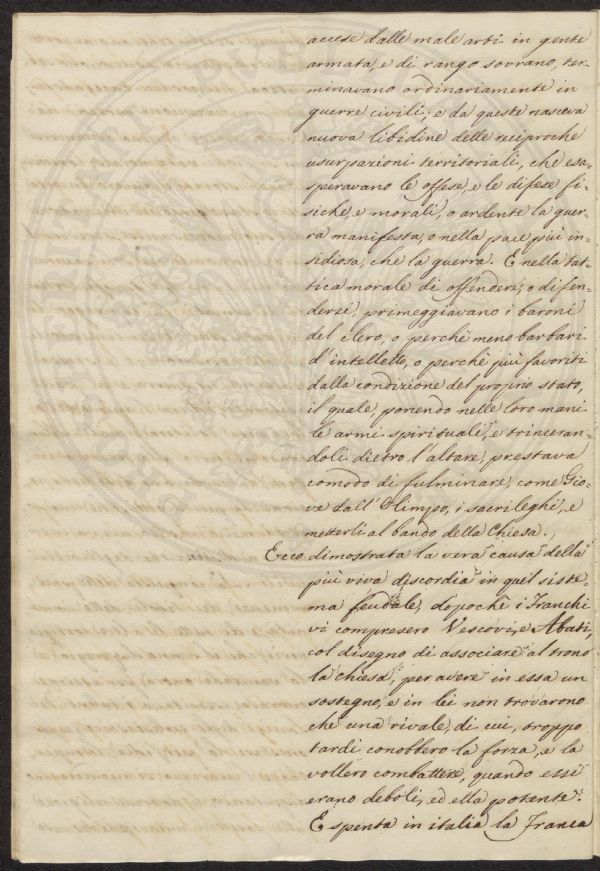 accese dalle male arti in gente
armata, e di rango sovrano, ter-
minavano ordinariamente in
guerre civili; e da queste nasceva
nuova libidine delle reciproche
usurpazioni territoriali, che esa-
speravano le offese, e le difese fi-
siche, e morali, o ardente la guer-
ra manifesta, o nella pace più in-
sidiosa, che la guerra. E nella tat-
tica morale di offendere, o difen-
dersi, primeggiavano i baroni
del clero, o perchè meno barbari
d'intelletto, o perchè più favoriti
dalla condizione del proprio stato,
il quale, ponendo nelle loro mani
le armi spirituali, e trinceran-
doli dietro l'altare, prestava
comodo di fulminare, come Gio-
ve dall'Olimpo, i sacrileghi, e
metterli al bando della Chiesa.
Ecco dimostrata la vera causa della
più viva discordia in quel siste-
ma feudale, dopochè i Franchi
vi compresero Vescovi, e Abati,
col disegno di associare al trono
la chiesa, per avere in essa un
sostegno, e in lei non trovarono
che una rivale, di cui, troppo
tardi conobbero la forza, e la
vollero combattere, quando essi
erano deboli, ed ella potente.
E spenta in italia la Franca